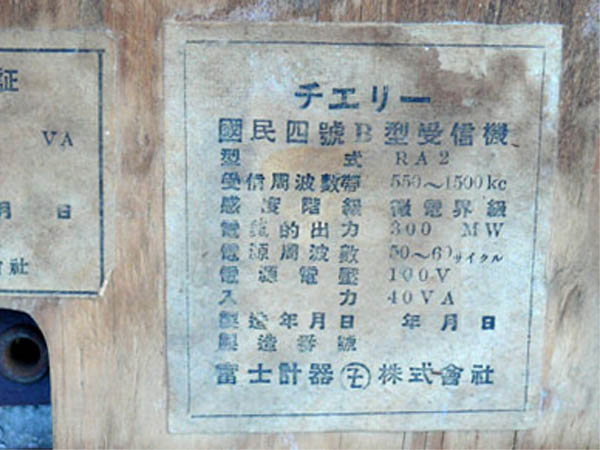 証
VA
月 日
會社
チエリー
國民四號B型受信機
型式 RA2
受信周波數帶 550～1500kc
感度階級 微電界級
電氣的出力 300 MW
電源周波數 50～60サイクル
電源電壓 100V
入力 40VA
製造年月日 年 月 日
製造番號
富士計器株式會社